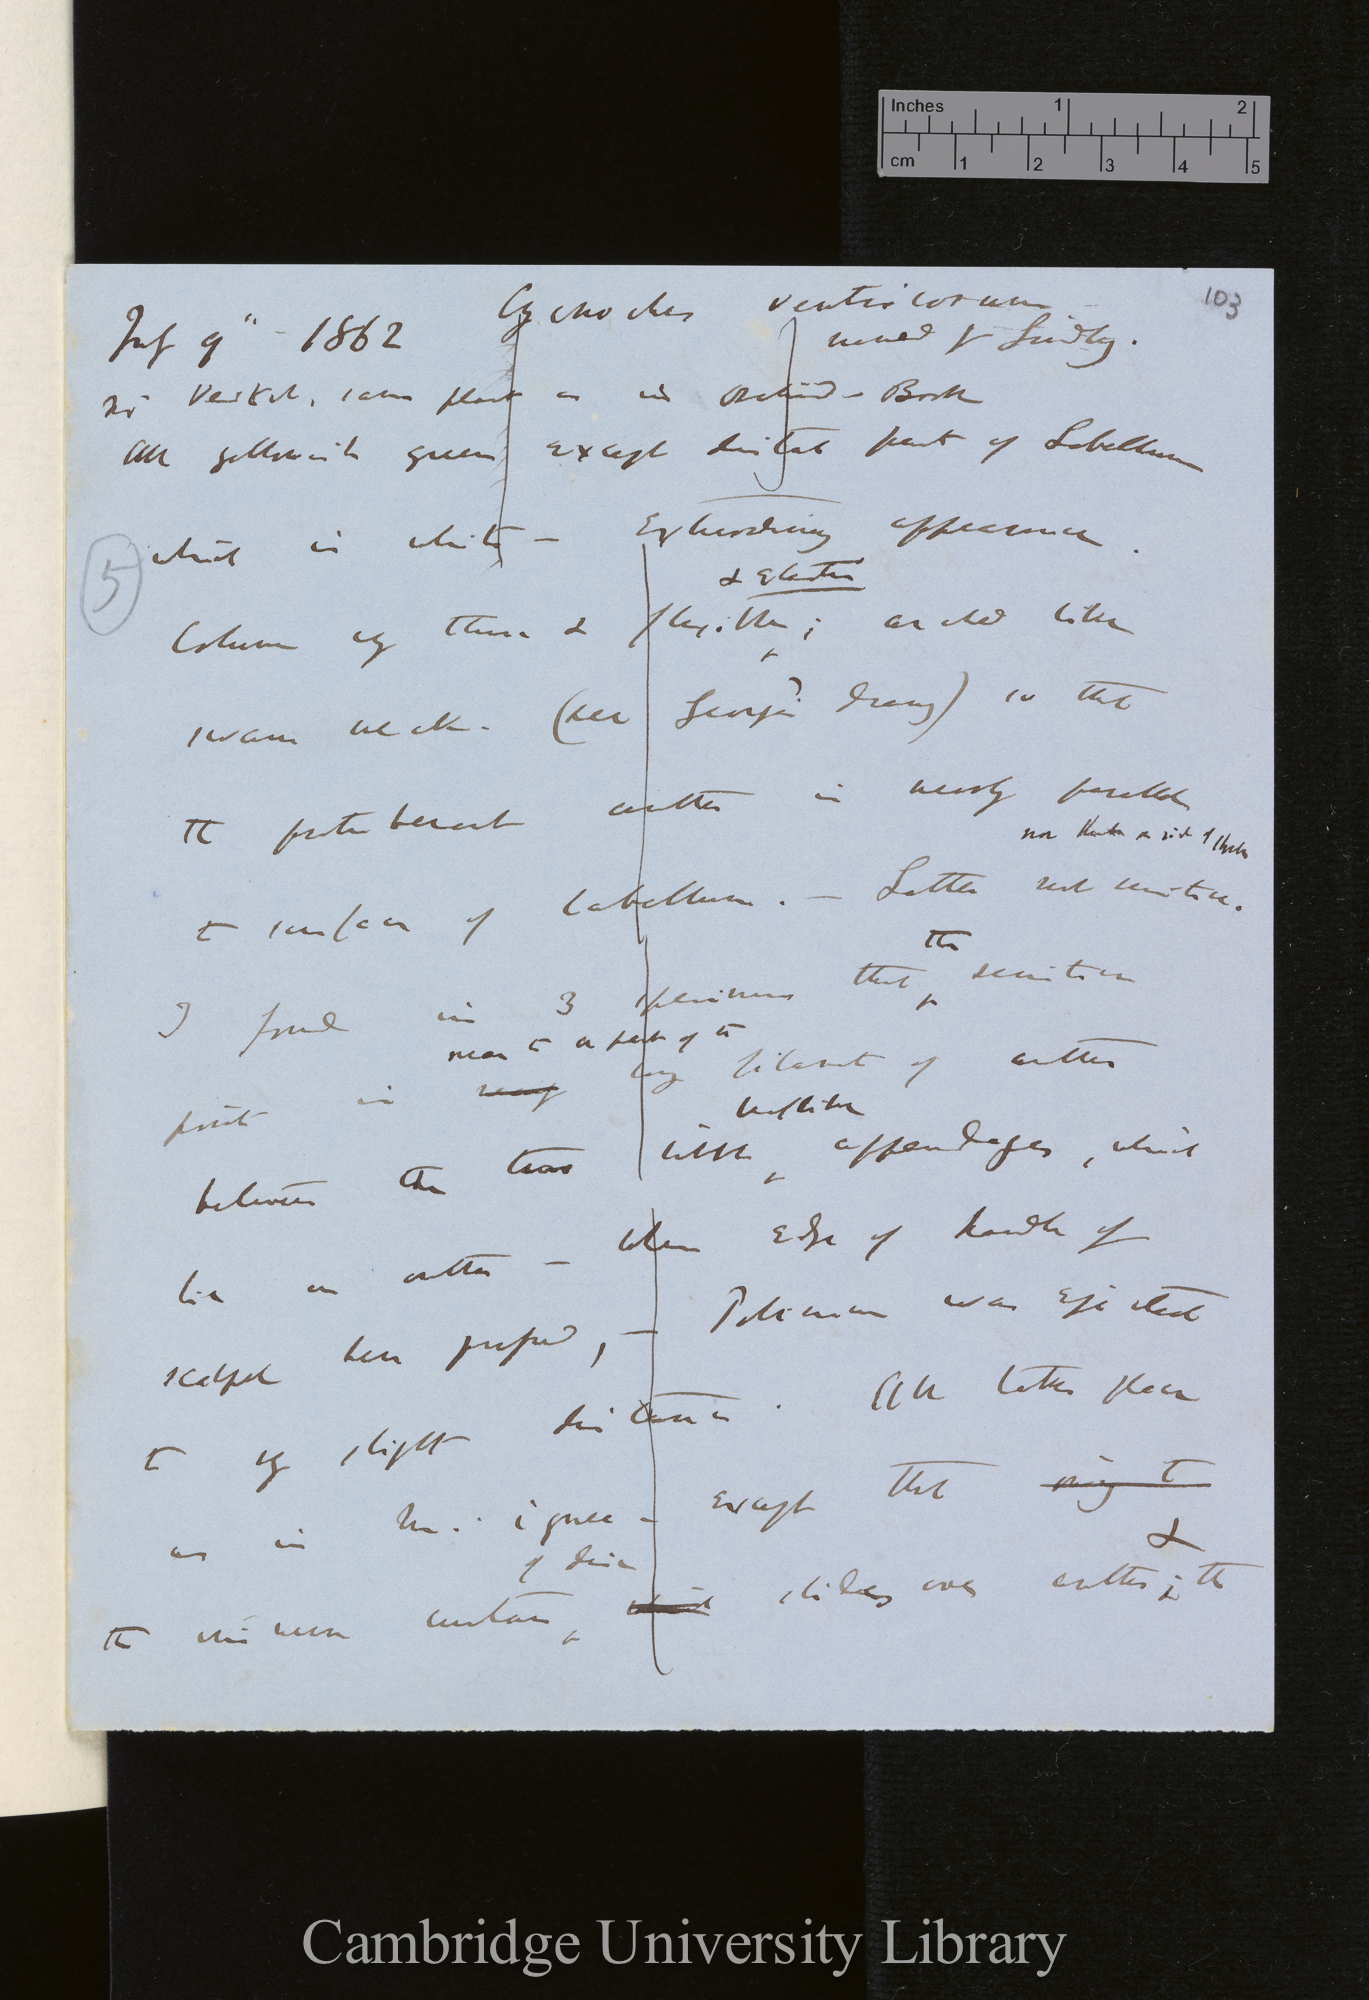 Inches 1 2
cm 1 2 3 4 5
103
July 9th - 1862 Cycnoches ventricosum
named by Lindley.
Mr Veitch, same plant as in Orchid-Book
All yellowish green except distal part of Labellum
which is white — Extraordinary appearance.
& elastic
5
Column very thin & flexible; arched like
swan neck. (see George's drawing) so that
the protuberant anther is nearly parallel
nor th on side of
to surface of labellum. — Latter not sensitive.
the
I found in 3 specimens that sensitive
near to or part of the
point is very long filament of anther
leaflike
between the two little appendages, which
lie on anther — When edge of handle of
scalpel here pressed, — Pollinium was ejected
to very slight distance. All takes place
as in Mr. except that
of disc
the membrane which slides over anther; & the
Cambridge University Library